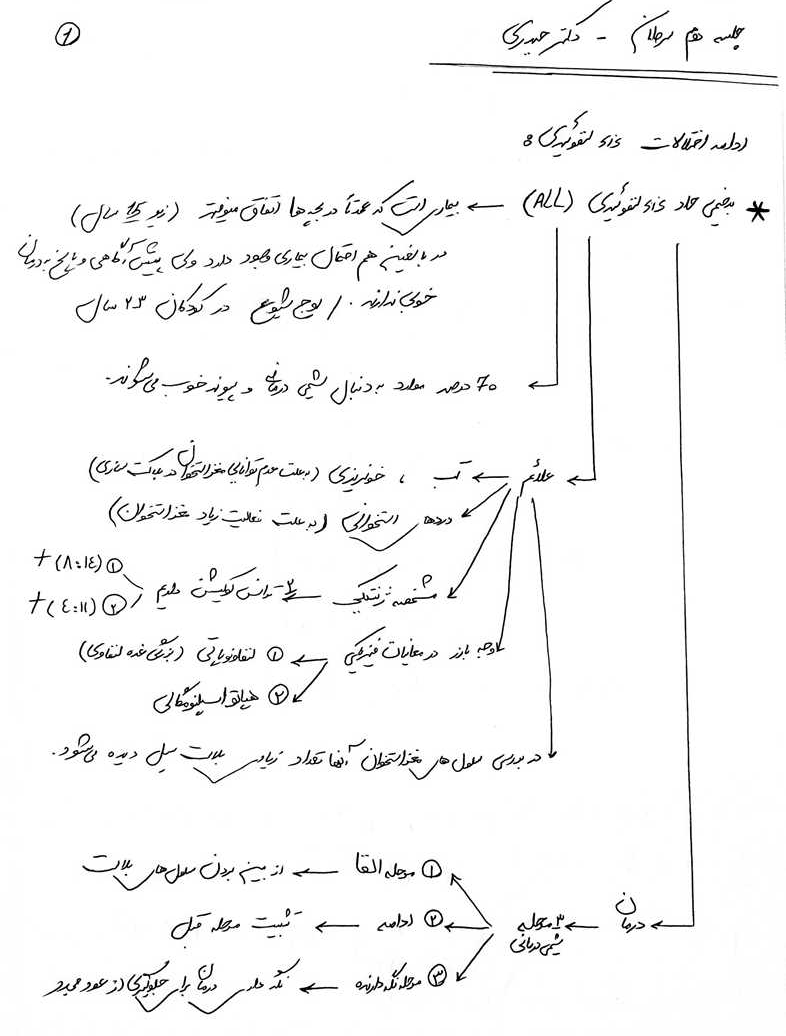 ①
جلسه دهم سرطان - دکتر حیدری
ادامه اختلالات غدد لنفوئیدی :
* بدخیمی حاد غدد لنفوئیدی (ALL) ← بیماری است که عمدتاً در بچه ها اتفاق میوفتد (زیر 15 سال)
در بالغین هم احتمال بیماری وجود دارد ولی پیش آگاهی و پاسخ به درمان
خوبی ندارند. / اوج شیوع در کودکان ۲-۳ سال
← 70 درصد موارد به دنبال شیمی درمانی و پیوند خوب می‌شوند.
← علائم ← تب ، خونریزی (به علت عدم توانایی مغز استخوان در پلاکت سازی)
دردهای استخوانی (به علت فعالیت زیاد مغز استخوان)
مشخصه ژنتیکی ← ۲ ترانس لوکیشن داریم ① (۸:۱٤)+
② (٤:۱۱)+
وجه بارز در معاینات فیزیکی ← ① لنفادنوپاتی (بزرگی غده لنفاوی)
② هپاتو اسپلنومگالی
در بررسی سلول های مغز استخوان آنها تعداد زیادی بلاست سل دیده می‌شود.
← درمان ← ۳ مرحله
شیمی درمانی
① مرحله القا ← از بین بردن سلول های بلاست
② ادامه ← تثبیت مرحله قبل
③ مرحله نگه دارنده ← نگه داری درمان برای جلوگیری از عود مجدد